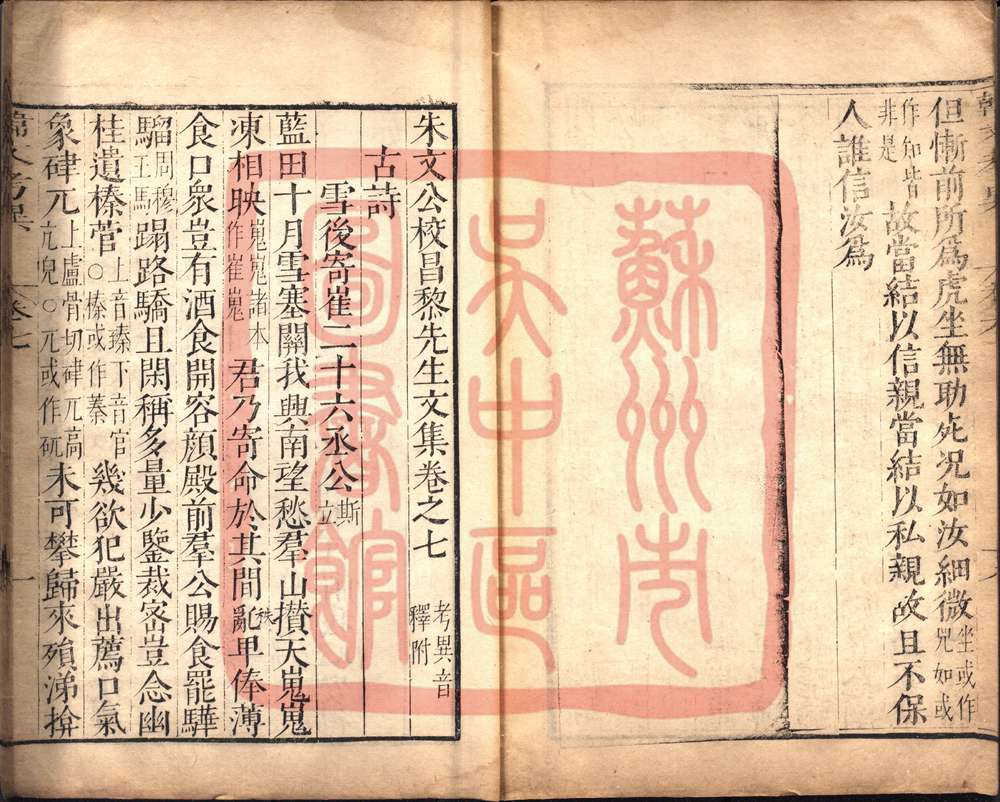 但慚前所爲虎坐無助死况如汝細微坐或作兄如或
作知皆非是故當結以信親當結以私親故且不保
人誰信汝爲
朱文公校昌黎先生文集卷之七考異音釋附
古詩
雪後寄崔二十六丞公斯立
藍田十月雪塞關我興南望愁羣山攅天嵬嵬
凍相映嵬嵬諸本作崔嵬君乃寄命於其間秩卑俸薄
食口衆豈有酒食開容顔殿前羣公賜食罷驊
騮周穆王馬蹋路驕且閑稱多量少鑒裁密豈念幽
桂遺榛菅上音臻下音官○榛或作蓁幾欲犯嚴出薦口氣
象硉兀上盧骨切硉兀高皃○兀或作矹未可攀歸來殞涕揜
蘇州市
吳中區
圖書館